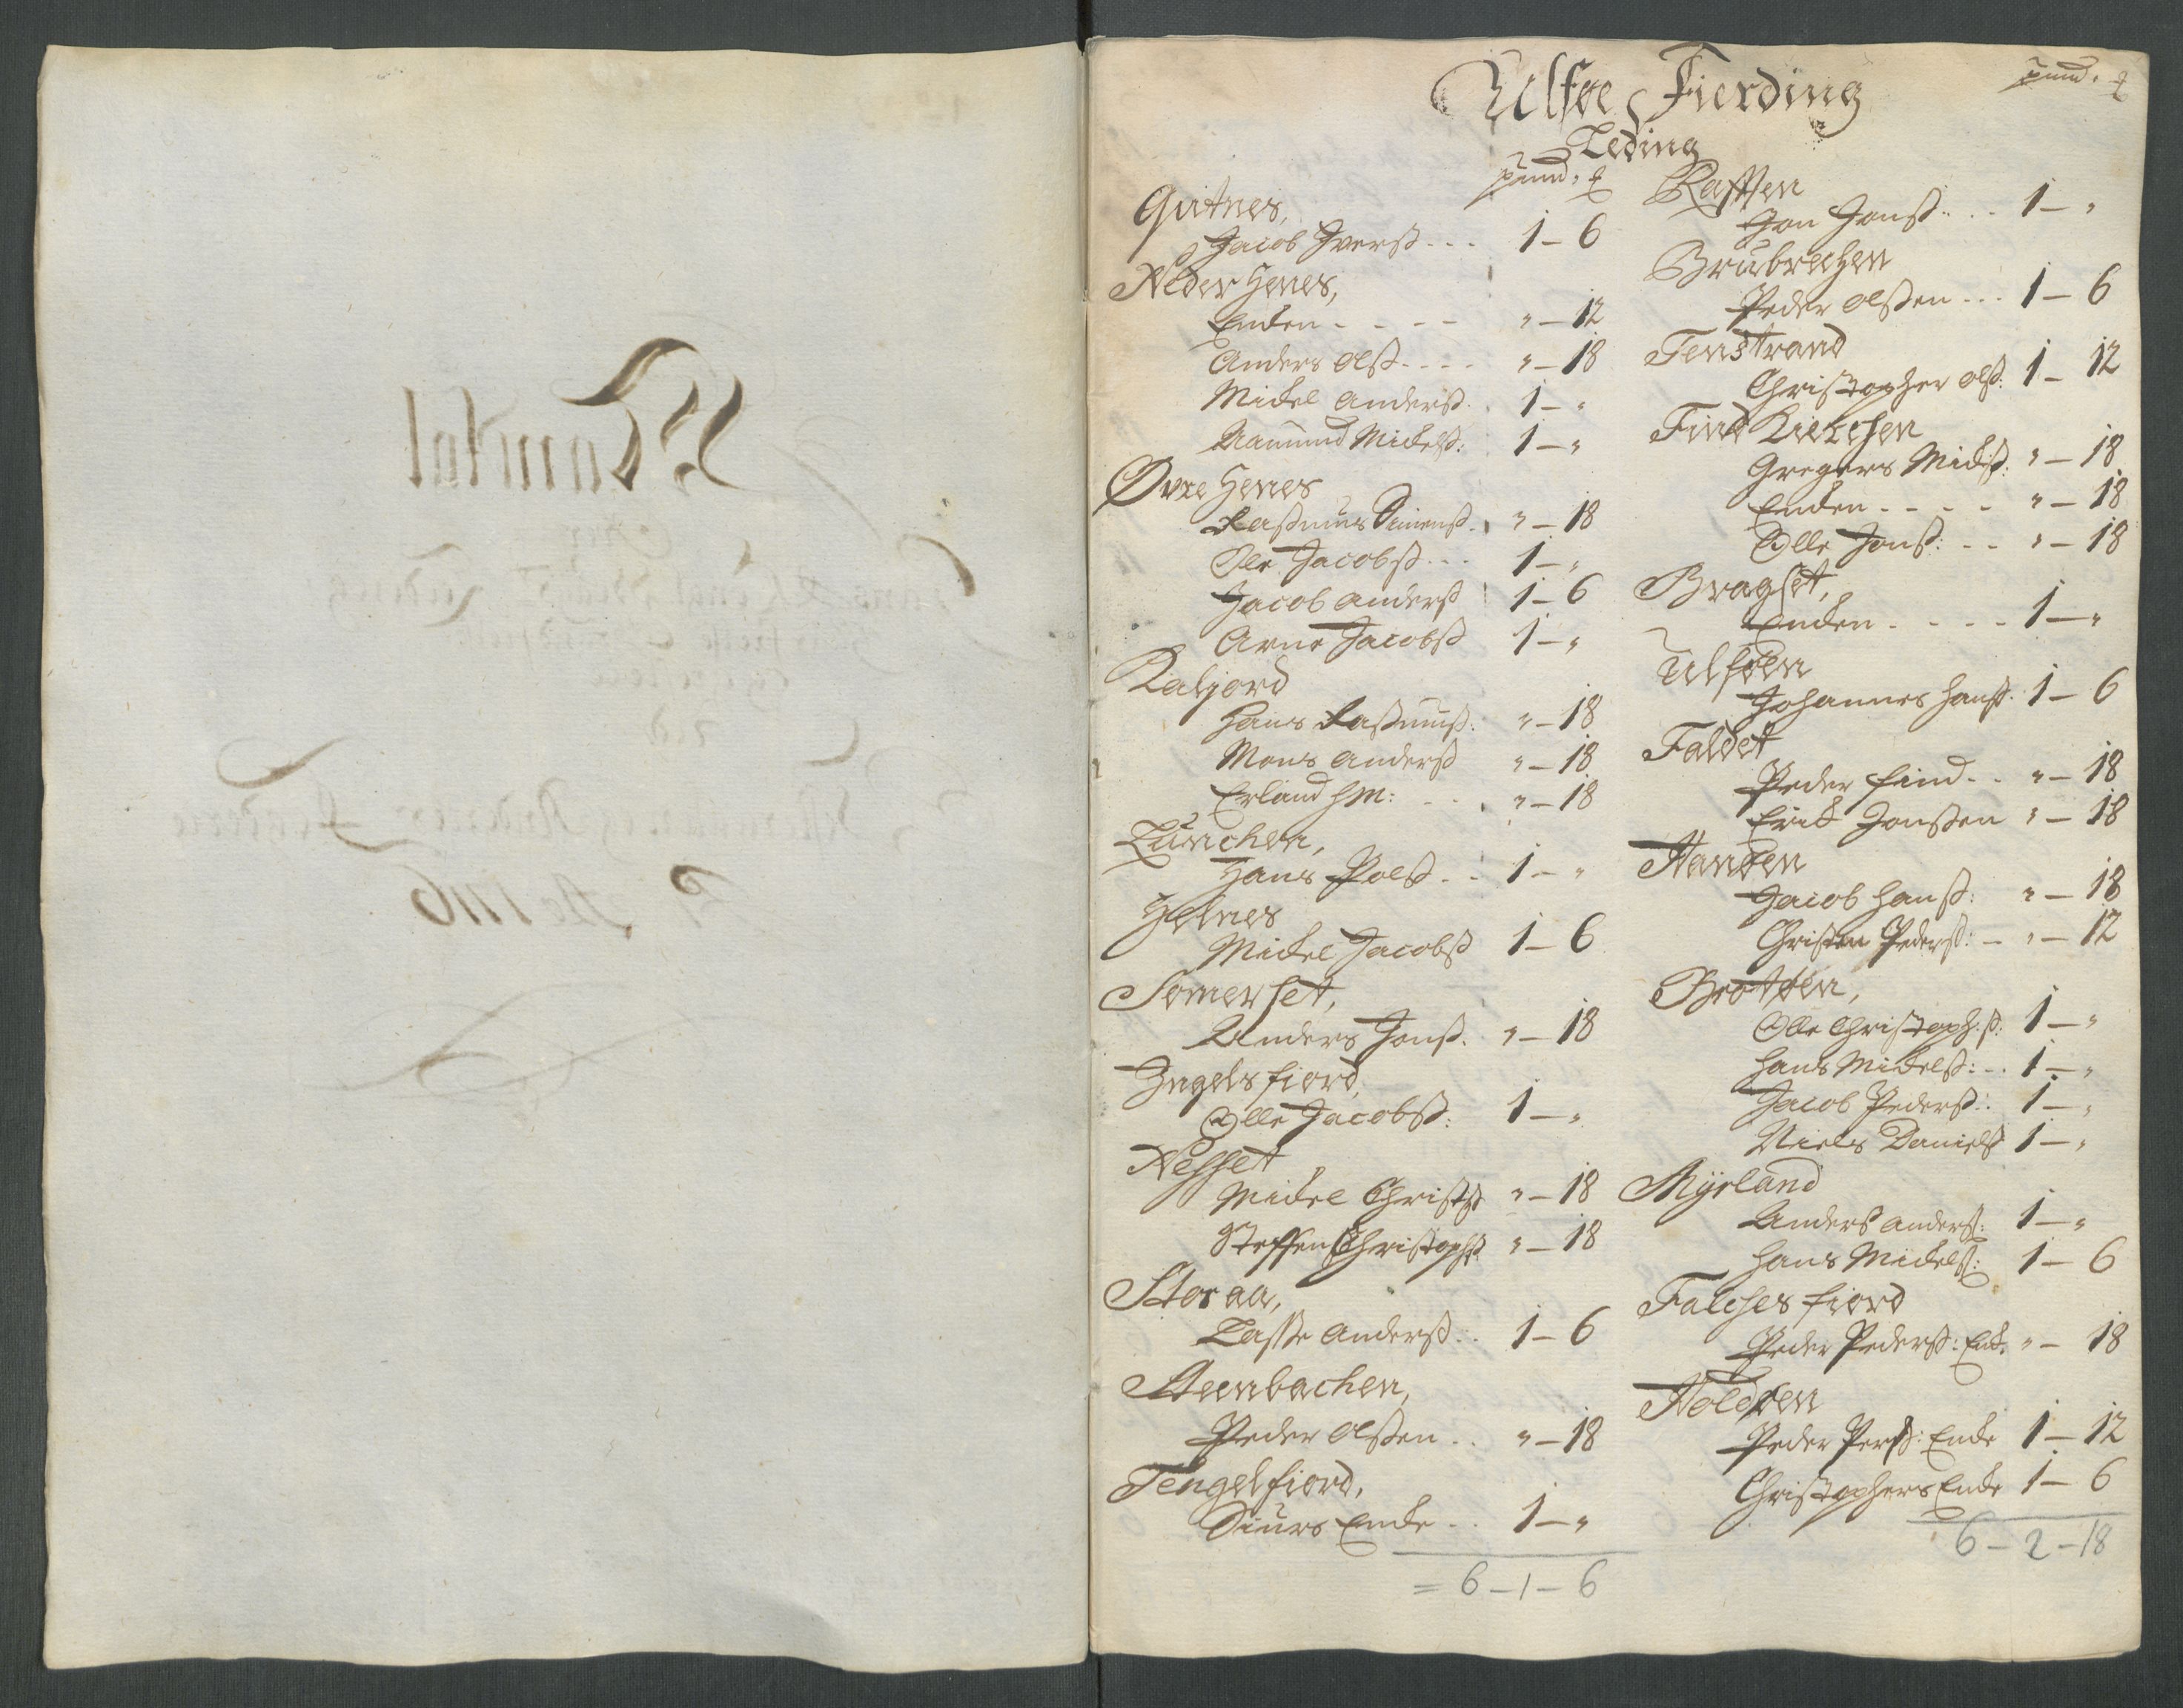 Ulføe Fierding
Teding
pund. ℔
Guitnes,
Jacob Iverß: - - - 1 - 6
Neder Henes,
Enken - - - - " - 12
Anders Olß - - - - " - 18
Mickel Anderß. 1 - "
Aamund Mickelß: 1 - "
Øvre Henes
Raßmus Simenß. " - 18
Ole Jacobß - - - 1 - "
Jacob Anderß 1 - 6
Arne Jacobß 1 - "
Kaljord
Hans Raßmuß: " - 18
Mons Anderß " - 18
Erland HM: - - . " - 18
Tunchen,
Hans Polß - - 1 - "
Helnes
Mickel Jacobß 1 - 6
Somerset,
Anders Jonß. " - 18
Ingelsfiord,
Olle Jacobß: 1 - "
Nesset
Mickel Christß " - 18
Steffen Christophß " - 18
Storaa,
Lasse Anderß: . 1 - 6
Steenbachen,
Peder Olßen . . " - 18
Tengelfiord,
Siurs Enke - . 1 - "
= 6 - 1 - 6
pund. ℔
Raften
Jon Jonß: . . - 1 - "
Brubrechen
Peder Olßen - - - 1 - 6
Fenstrand
Christopher Olß: 1 - 12
Find Kierchen
Gregers Mickß: " - 18
Enken - - - - " - 18
Olle Jonß: - - " - 18
Bragset,
Enken - - - - 1 - "
Ulføen
Johannes Hanß. 1 - 6
Faldet
Peder Find - - " - 18
Erik Jonßen " - 18
Handen
Jacob Hanß: " - 18
Christen Pederß: - " - 12
Brotøen,
Olle Christoph:ß: 1 - "
Hans Mickelß: - . 1 - "
Jacob Pederß: . 1 - "
Niels Danielß 1 - "
Myrland
Anders Anderß: 1 - "
Hans Mickelß: 1 - 6
Falchesfiord
Peder Pederß: Enk. " - 18
Holdøen
Peder Perß: Enke 1 - 12
Christophers Enke 1 - 6
6 - 2 - 18